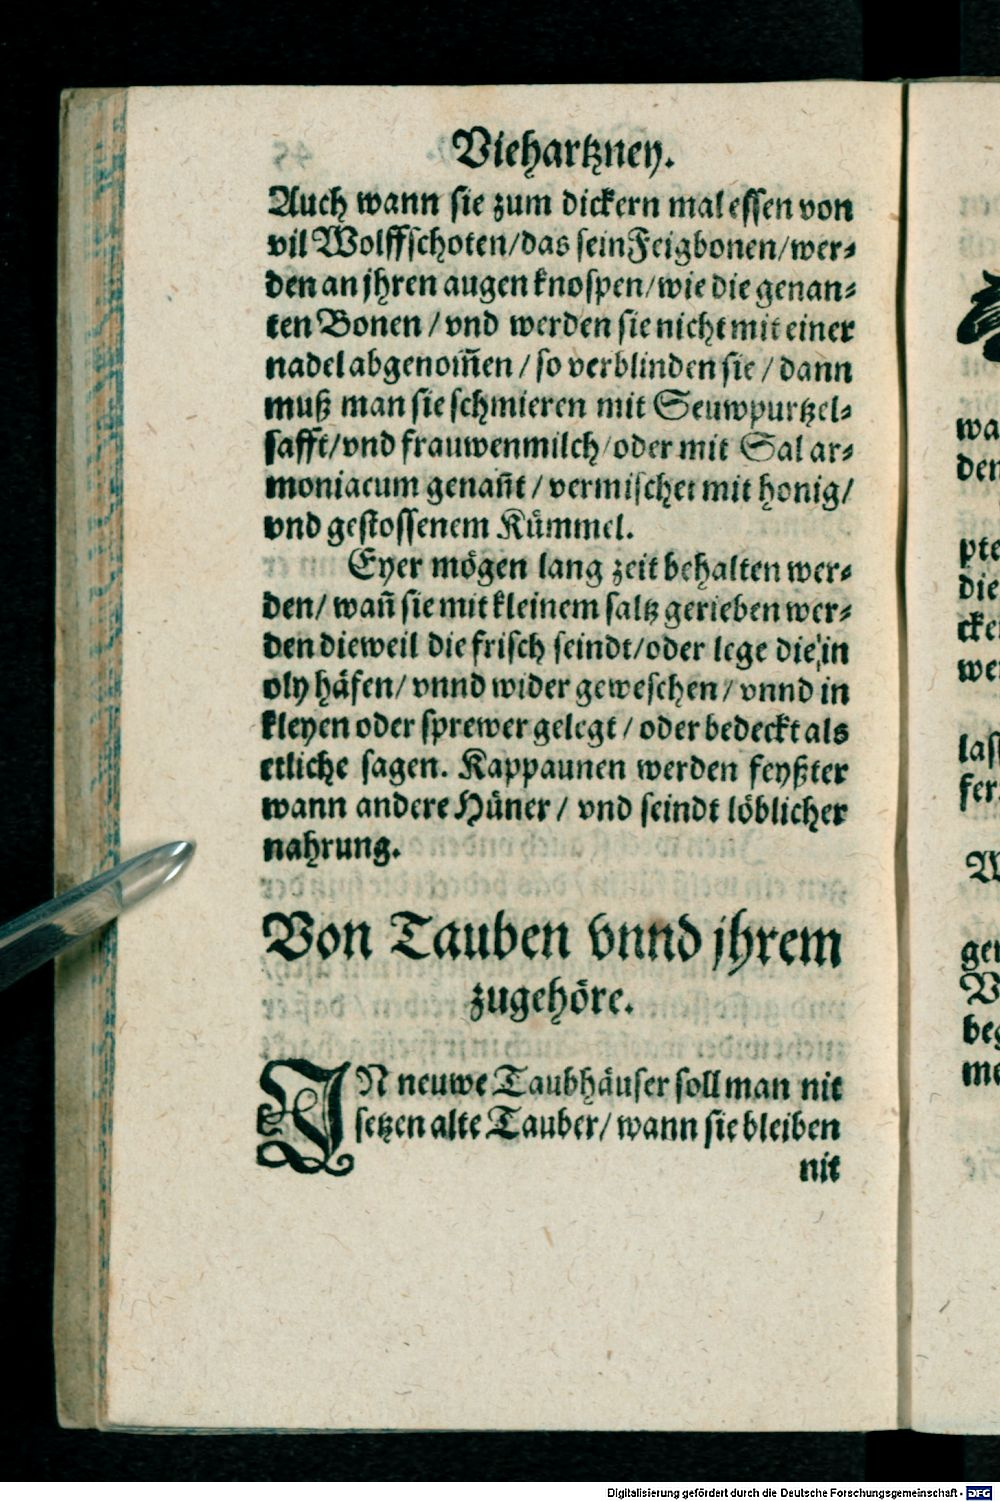 Viehartzney.
Auch wann sie zum dickern mal essen von
vil Wolffschoten/das sein Feigbonen/wer⸗
den an jhren augen knospen/wie die genan⸗
ten Bonen / vnd werden sie nicht mit einer
nadel abgenom̃en / so verblinden sie / dann
muß man sie schmieren mit Seuwpurtzel⸗
safft/vnd frauwenmilch/oder mit Sal ar⸗
moniacum genañt / vermischet mit honig/
vnd gestossenem Kümmel.
Eyer mögen lang zeit behalten wer⸗
den/ wañ sie mit kleinem saltz gerieben wer⸗
den dieweil die frisch seindt/oder lege die in
oly häfen/ vnnd wider geweschen / vnnd in
kleyen oder sprewer gelegt / oder bedeckt als
etliche sagen. Kappaunen werden feyßter
wann andere Hüner / vnd seindt löblicher
nahrung.
Von Tauben vnnd jhrem
zugehöre.
IN neuwe Taubhäuser soll man nit
setzen alte Tauber/ wann sie bleiben
nit
wa
den
pte
die
cke
we
las
fer.
ge
beg
me
Digitalisierung gefördert durch die Deutsche Forschungsgemeinschaft - DFG